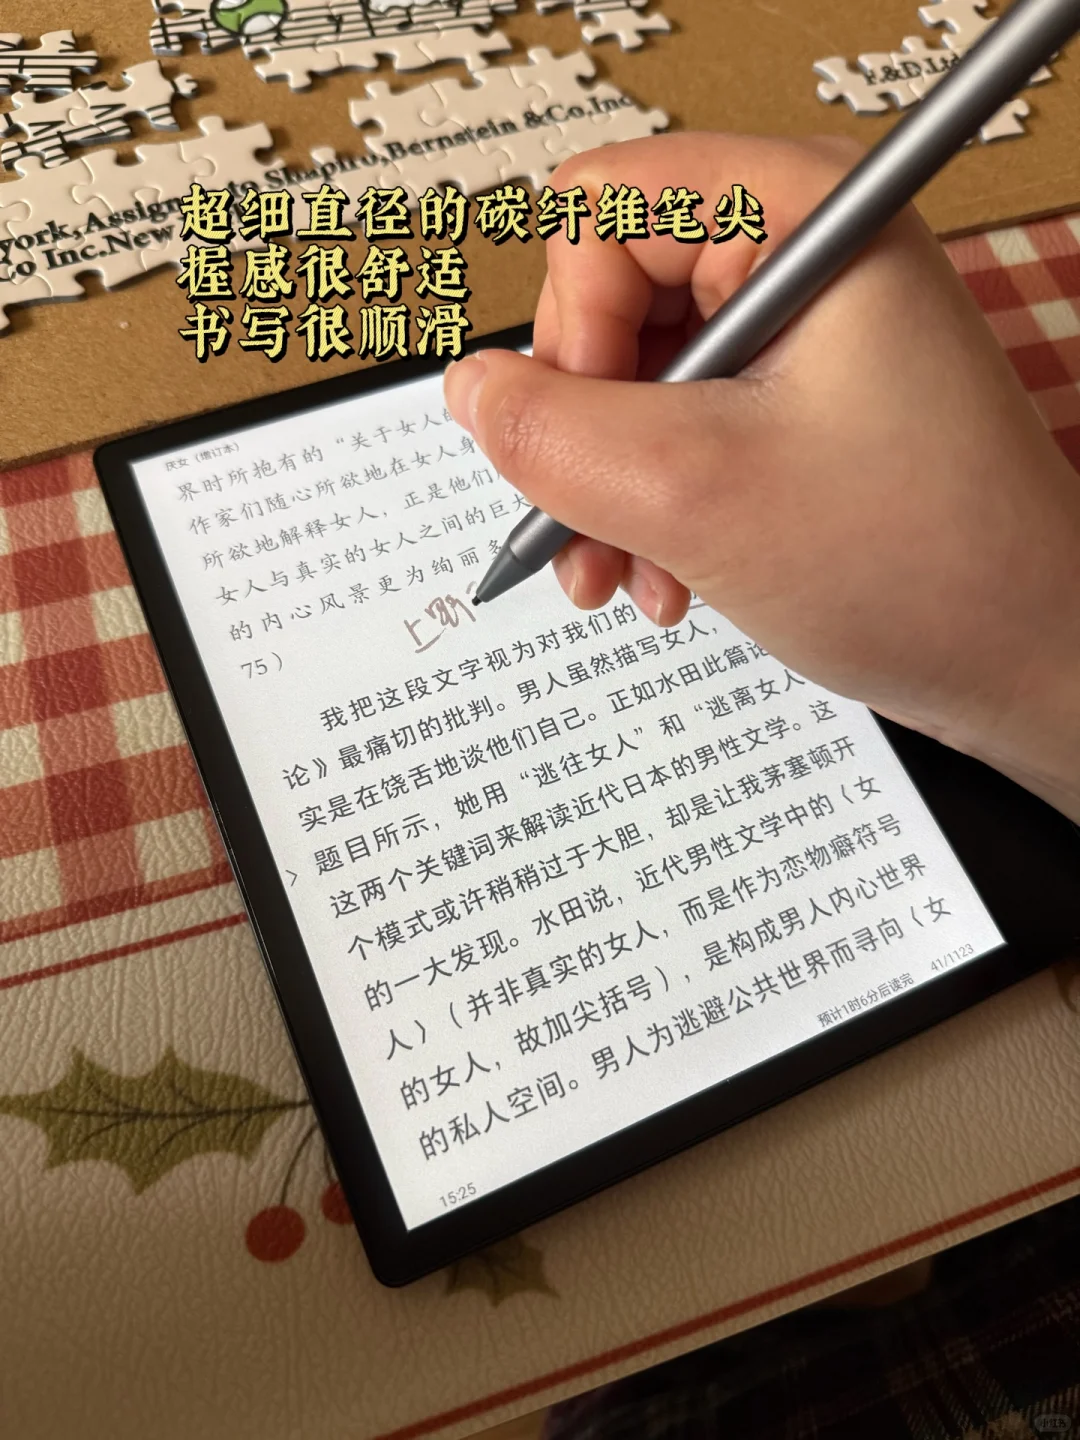 F.&D.Ltd
to Shapiro,Bernstein &Co,Inc
york,Assign
Co Inc.New
超细直径的碳纤维笔尖
握感很舒适
书写很顺滑
厌女（增订本）
界时所抱有的“关于女人的
作家们随心所欲地在女人身
所欲地解释女人，正是他们
女人与真实的女人之间的巨大
的内心风景更为绚丽多
75）
我把这段文字视为对我们的
论》最痛切的批判。男人虽然描写女人，
实是在饶舌地谈他们自己。正如水田此篇论
题目所示，她用“逃往女人”和“逃离女人
这两个关键词来解读近代日本的男性文学。这
个模式或许稍稍过于大胆，却是让我茅塞顿开
的一大发现。水田说，近代男性文学中的〈女
人〉（并非真实的女人，而是作为恋物癖符号
的女人，故加尖括号），是构成男人内心世界
的私人空间。男人为逃避公共世界而寻向〈女
15:25
预计1时6分后读完 41/1123
小红书